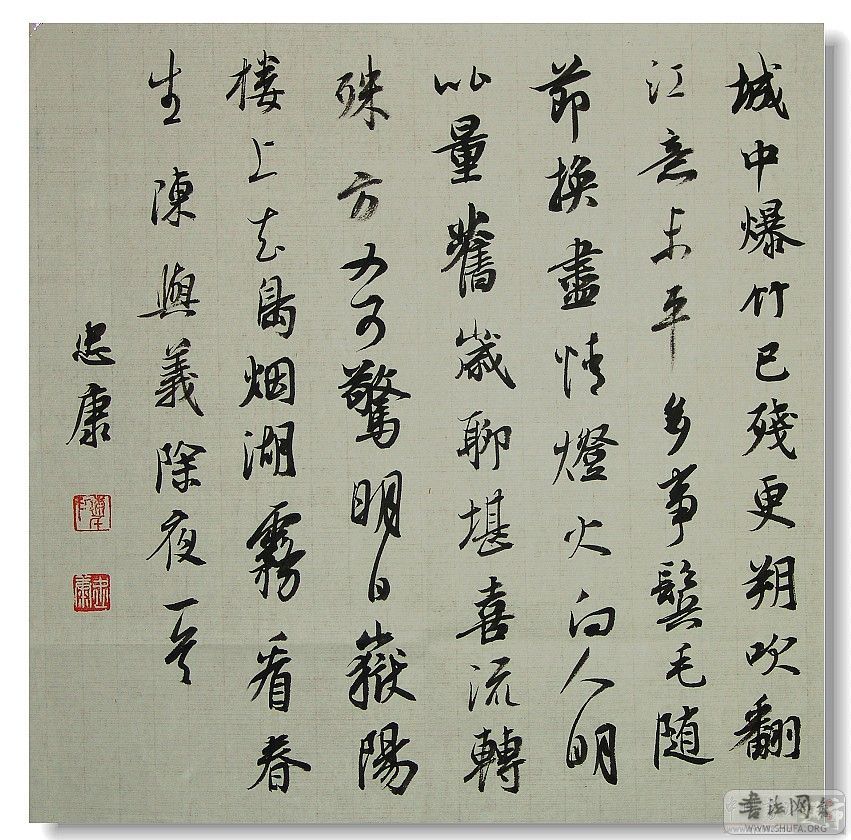 城中爆竹已殘更朔吹翻
江意未平多事鬢毛随
節換盡情燈火向人明
比量舊歲聊堪喜流轉
殊方又可驚明日嶽陽
楼上去島烟湖霧看春
生陳與義除夜一首
忠康
忠康
書法网
WWW.SHUFA.ORG